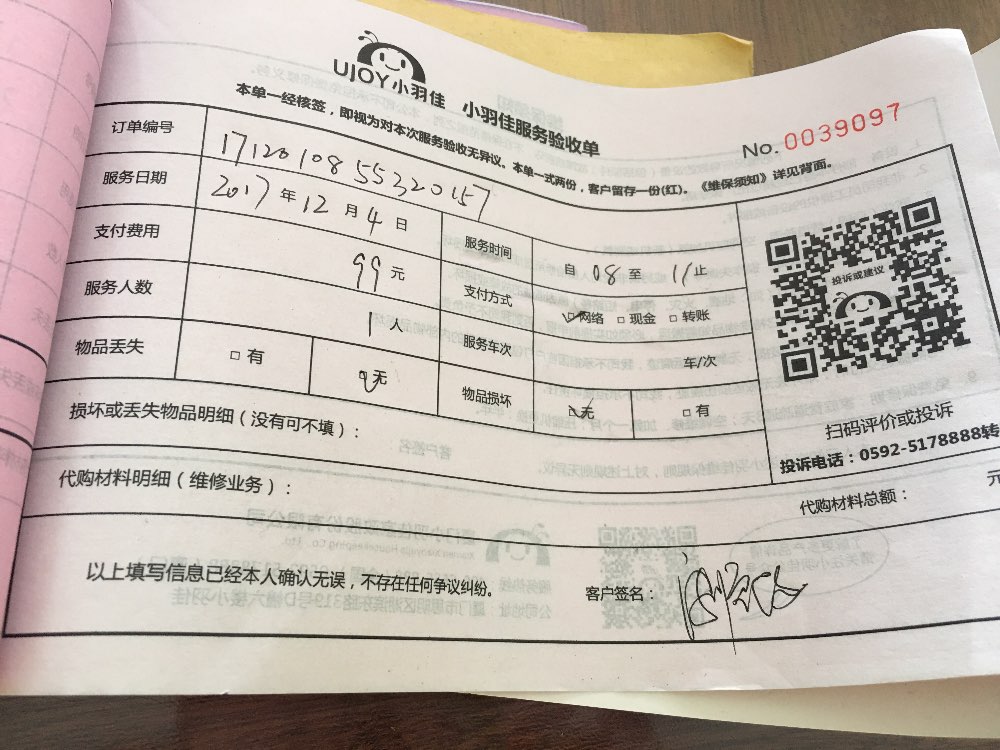 UJOY小羽佳 小羽佳服务验收单
本单一经核签，即视为对本次服务验收无异议。本单一式两份，客户留存一份(红)。《维保须知》详见背面。
No. 0039097
订单编号 1712010855320457
服务日期 2017年12月4日 服务时间 自08至11止
支付费用 99元 支付方式 网络 □现金 □转账
服务人数 1人 服务车次 车/次
物品丢失 □有 无 物品损坏 无 □有
投诉或建议
扫码评价或投诉
投诉电话：0592-5178888转
损坏或丢失物品明细（没有可不填）：
代购材料明细（维修业务）：
代购材料总额： 元
以上填写信息已经本人确认无误，不存在任何争议纠纷。 客户签名：